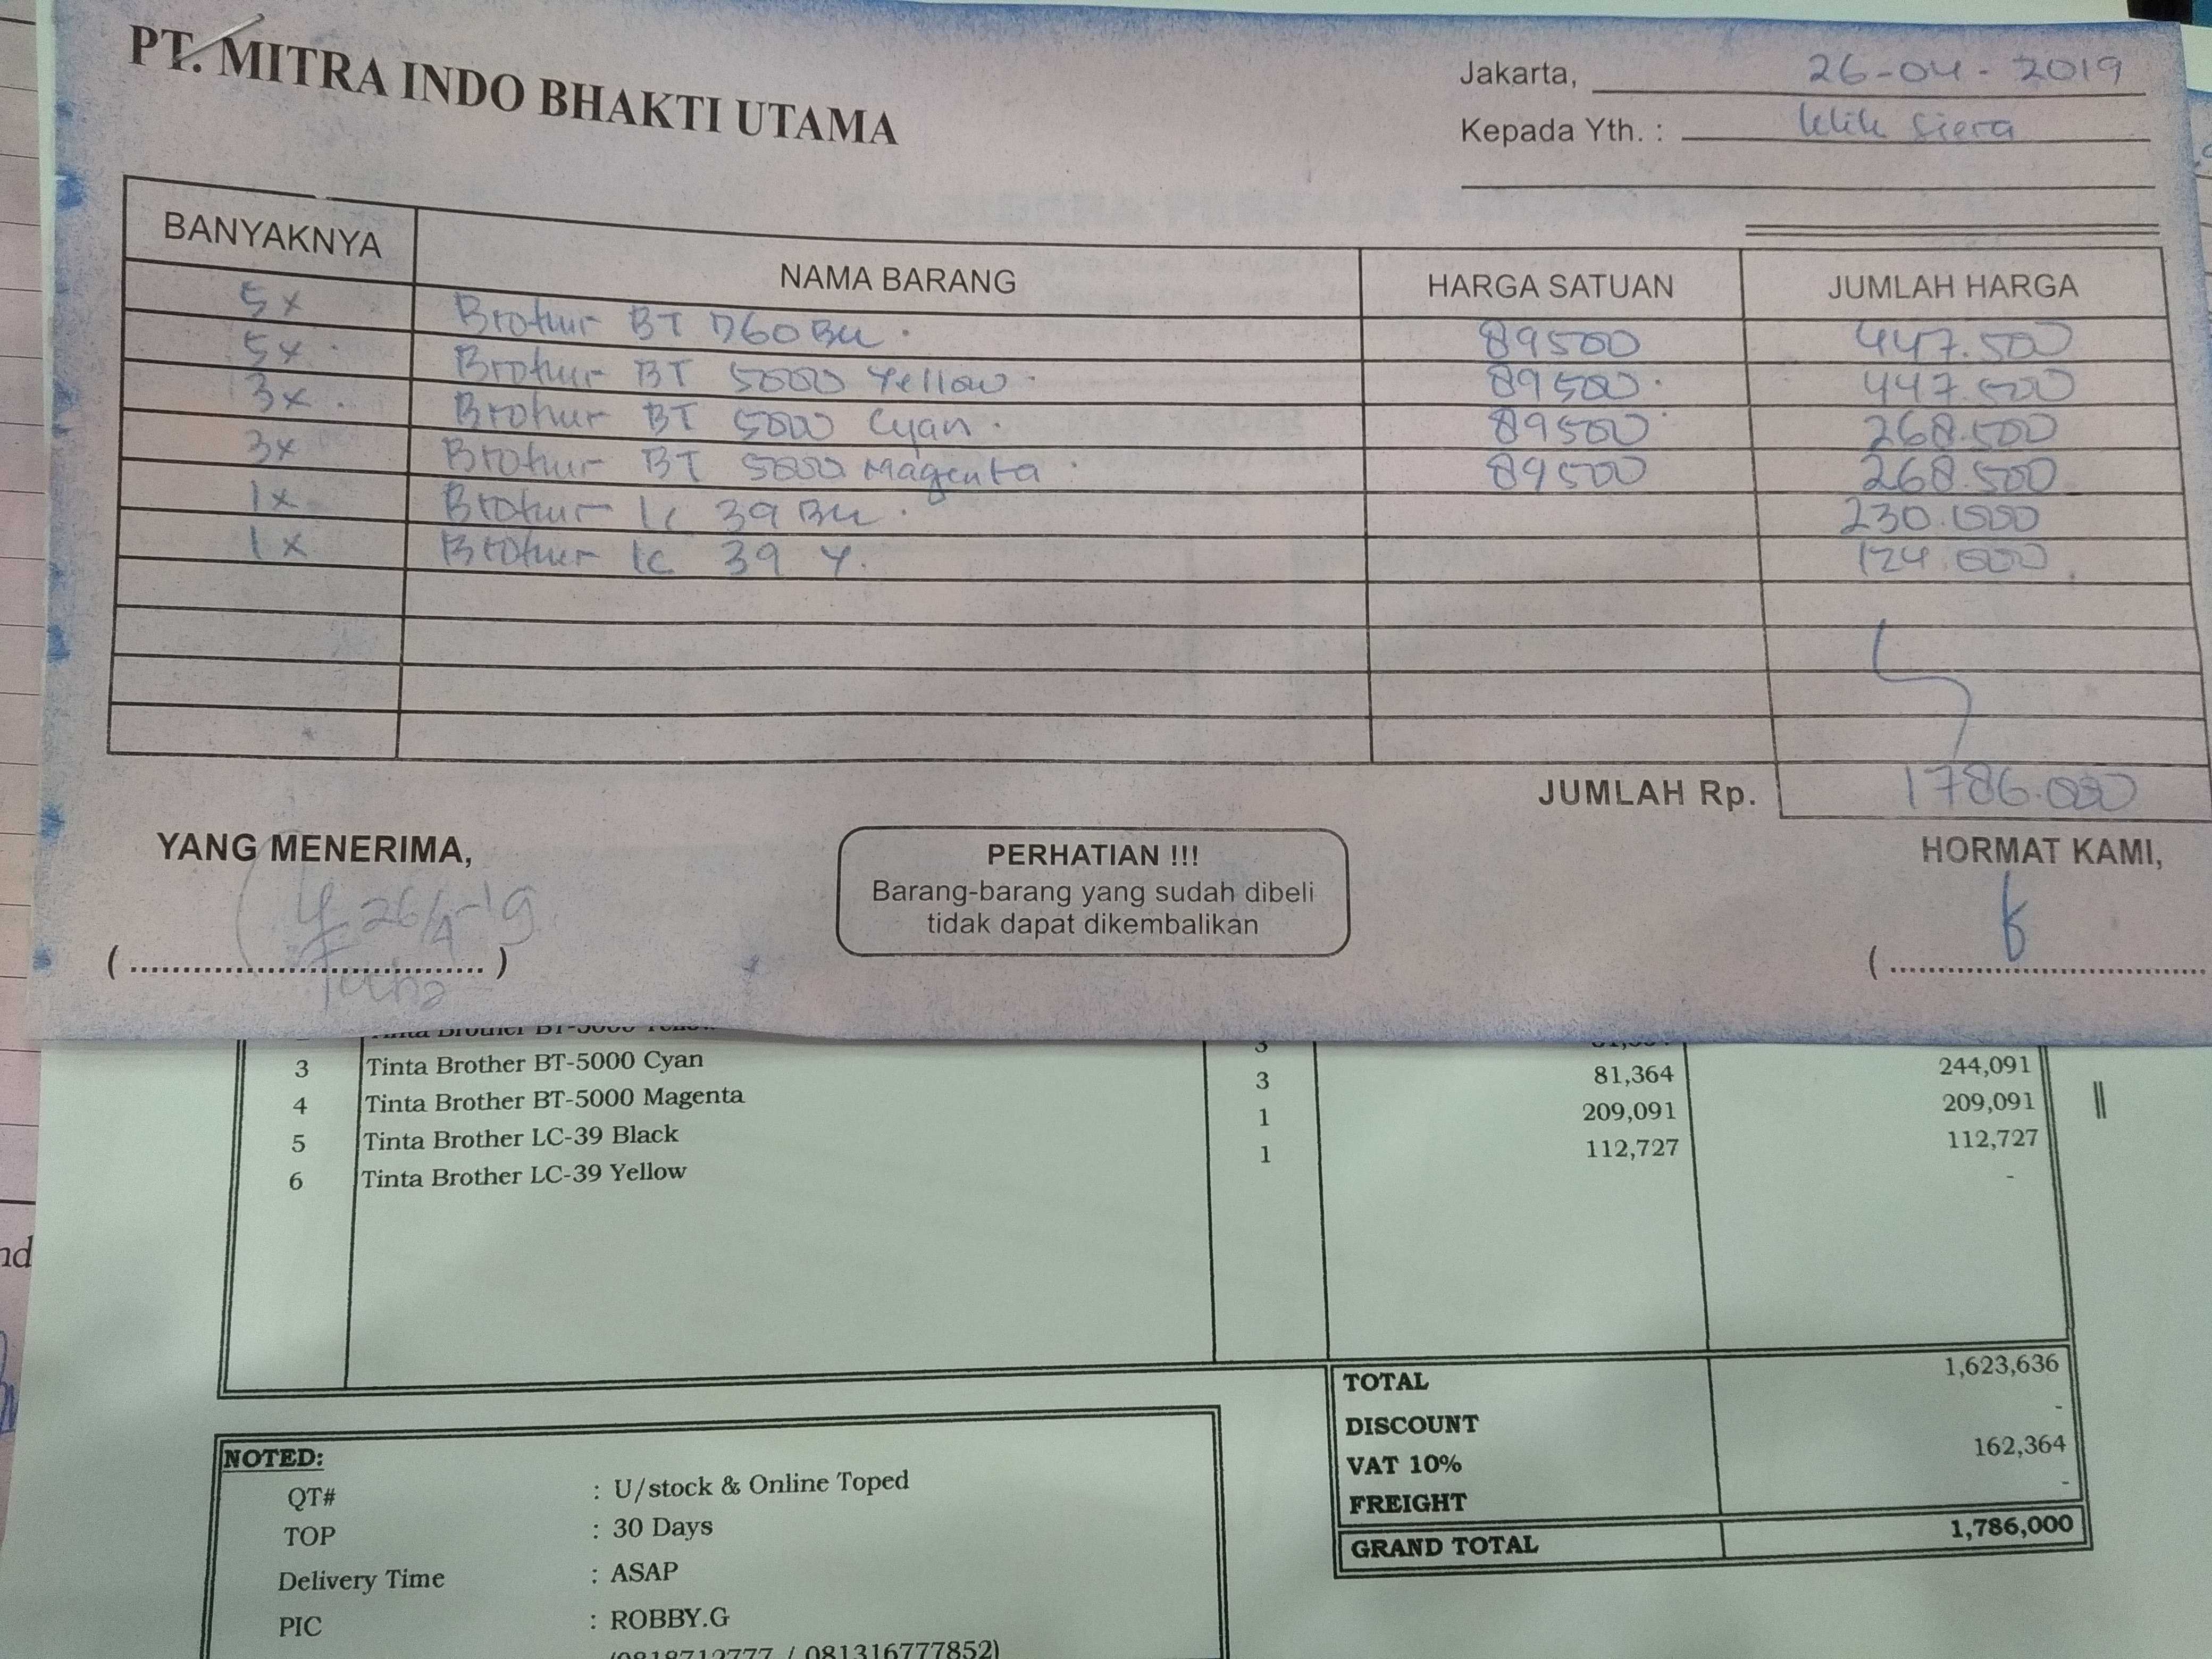 PT. MITRA INDO BHAKTI UTAMA
Jakarta, 26-04-2019
Kepada Yth. : Klik Siera
BANYAKNYA NAMA BARANG HARGA SATUAN JUMLAH HARGA
5x Brother BT D60 BK. 89500 447.500
5x Brother BT 5000 Yellow 89500 447.500
3x Brother BT 5000 Cyan 89500 268.500
3x Brother BT 5000 Magenta 89500 268.500
1x Brother lc 39 BK 230.000
1x Brother lc 39 Y. 124.000
JUMLAH Rp. 1786.000
YANG MENERIMA,
26/4-19
PERHATIAN !!!
Barang-barang yang sudah dibeli
tidak dapat dikembalikan
HORMAT KAMI,
Tinta Brother BT-5000 Yellow
3 Tinta Brother BT-5000 Cyan 3 81,364 244,091
4 Tinta Brother BT-5000 Magenta 3 209,091 209,091
5 Tinta Brother LC-39 Black 1 112,727 112,727
6 Tinta Brother LC-39 Yellow 1 -
TOTAL 1,623,636
DISCOUNT -
VAT 10% 162,364
FREIGHT -
GRAND TOTAL 1,786,000
NOTED:
QT# : U/stock & Online Toped
TOP : 30 Days
Delivery Time : ASAP
PIC : ROBBY.G
(0818712777 / 081316777852)